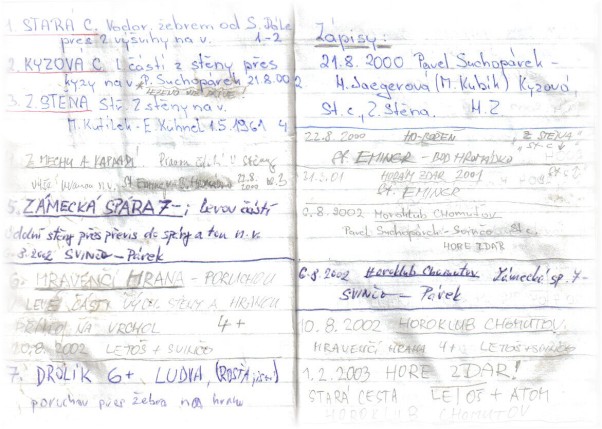 1. STARÁ C. Vodor. žebrem od S. Dále
přes 2. výšvihy na v. 1-2
2. KYZOVÁ C. L částí z stěny přes
kyzy na v. P. Suchopárek 21.8.00 2
3. Z. STĚNA Stř. Z stěny na v.
M. Kutílek - E. Kühnel 1.5.1961 4
Z MECHU A KAPRADÍ.
n.v. St. Eminger
5. ZÁMECKÁ SPÁRA 7- ; Levou částí
údolní stěny přes převis do spáry a tou n. v.
8.2002 SVINČO - Párek
6. MRAVENČÍ HRANA - PORUCHOU
LEVÉ ČÁSTI VÝCH. STĚNY A HRANOU
NA VRCHOL 4+
10.8.2002 LETOŠ + SVINČO
7. DROLÍK 6+ LUDVA, (ROSTA jist.)
poruchou přes žebra na hranu
Zápisy:
21.8.2000 Pavel Suchopárek -
H. Jaegerová (M. Kubík) Kyzová,
St. c., Z. Stěna. H.Z.
22.8.2000 Z STĚNA
St. EMINGR -
HORÁM ZDAR 2001
St. EMINGR
6.8.2002 Horoklub Chomutov
Pavel Suchopárek - Svinčo St. c.
HORE ZDAR
6.8.2002 Horoklub Chomutov Zámecká sp. 7-
SVINČO - Párek
10.8.2002 HOROKLUB CHOMUTOV
MRAVENČÍ HRANA 4+ LETOŠ + SVINČO
1.2.2003 HORE ZDAR!
STARÁ CESTA LETOŠ + ATOM
HOROKLUB CHOMUTOV